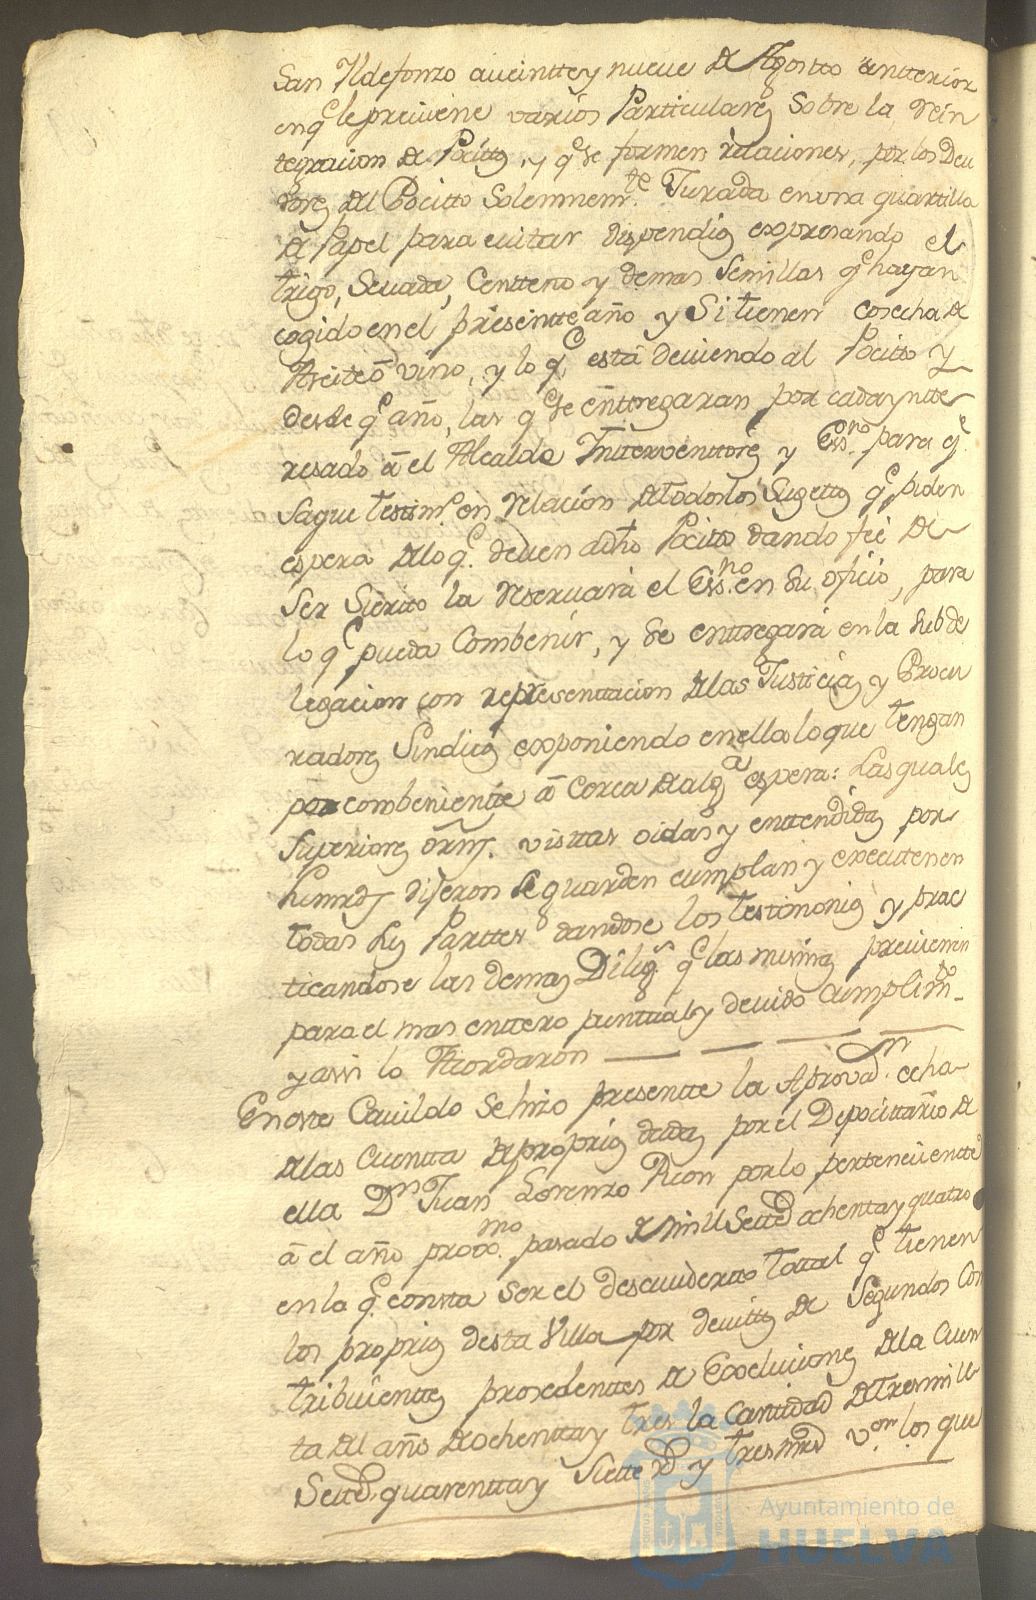 San Yldefonzo aveintte y nueve de Agostto antterior
enq.^e le previene varios Particulares Sobre la Rein
tegracion de Pocitos, y q.^e se formen relaciones, por los Deu
dores del Pocitto Solemnem.^te Jurada en una quartilla
de Papel para evitar dispendios expresando el
trigo, Sevada, Centteno y demas Semillas q.^e hayan
cogido en el presentte año y Si tienen cosecha de
Aseite ō vino, y lo q.^e está deviendo al Pocitto y
desde q.^e año, las q.^e se enttregaran por cada yntte
resado ā el Alcalde Intterventtores y Es.^no para q.^e
saque testim.^o en relacion de todos los Sugettos q.^e piden
espera de lo q.^e deven a dho Pocitto dando feé de
Ser Sierto la reservará el Es.^no en su oficio, para
lo q.^e pueda Combenir, y se enttregará en la Subde
legacion con representtacion de las Justicias y Procu
radores Sindicos exponiendo en ella lo que tengan
por combenientte ā cerca de alg.^a espera: Las quales
Superiores ōrns. visttas oidas y enttendidas por
Smrds dijeron Se guarden cumplan y executen en
todas sus Parttes dandose los testimonios y prac
ticandose las demas Dilig.^s q.^e las mismas previenen
para el mas enttero punttual y devido cumplim.^to
y assi lo Acordaron — — — —
En este Cavildo Se hizo presentte la Aprovaz.^n echa
de las Cuentta de proprios dadas por el Deposittario de
ella D.^n Juan Lorenzo Rion por lo pertenecientte
ā el año prox.^mo pasado de mill Settez.^s ochenta y quatro
en la q.^e consta Ser el descuviertto tottal q.^e tienen
los proprios desta Villa por devitos de Segundos Con
tribuientes prosedenttes de Excluciones de la Cuen
ta del año de ochentta y tres la Cantidad de tres mill
Settez.^s quarentta y Siette r.^s y tres mrs v.^on los que
Ayuntamiento de
HUELVA